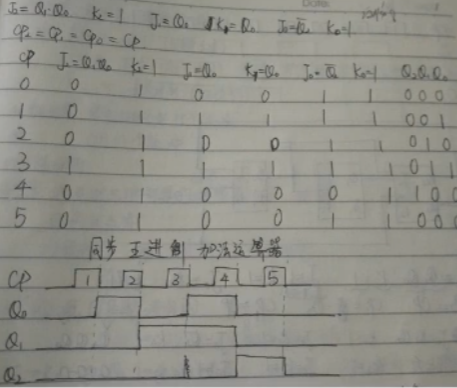 J₂=Q₁·Q₀ K₂=1 J₁=Q₀ K₁=Q₀ J₀=Q̅₂ K₀=1
CP₂=CP₁=CP₀=CP
CP J₂=Q₁Q₀ K₂=1 J₁=Q₀ K₁=Q₀ J₀=Q̅₂ K₀=1 Q₂Q₁Q₀
0 0 1 0 0 1 1 0 0 0
1 0 1 1 1 1 1 0 0 1
2 0 1 0 0 1 1 0 1 0
3 1 1 1 1 1 1 0 1 1
4 0 1 0 0 0 1 1 0 0
5 0 1 0 0 1 1 0 0 0
同步五进制 加法运算器
CP 1 2 3 4 5
Q₀
Q₁
Q₂